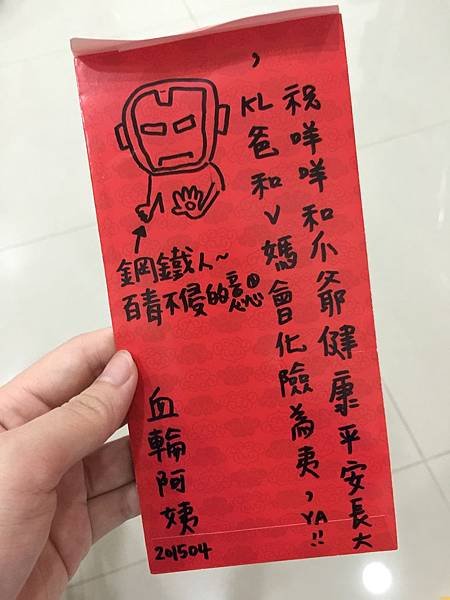 祝咩咩和爪爺健康平安長大
，KL爸和V媽會化險為夷，YA!!
鋼鐵人~
百毒不侵的意思
血輪阿姨
201504